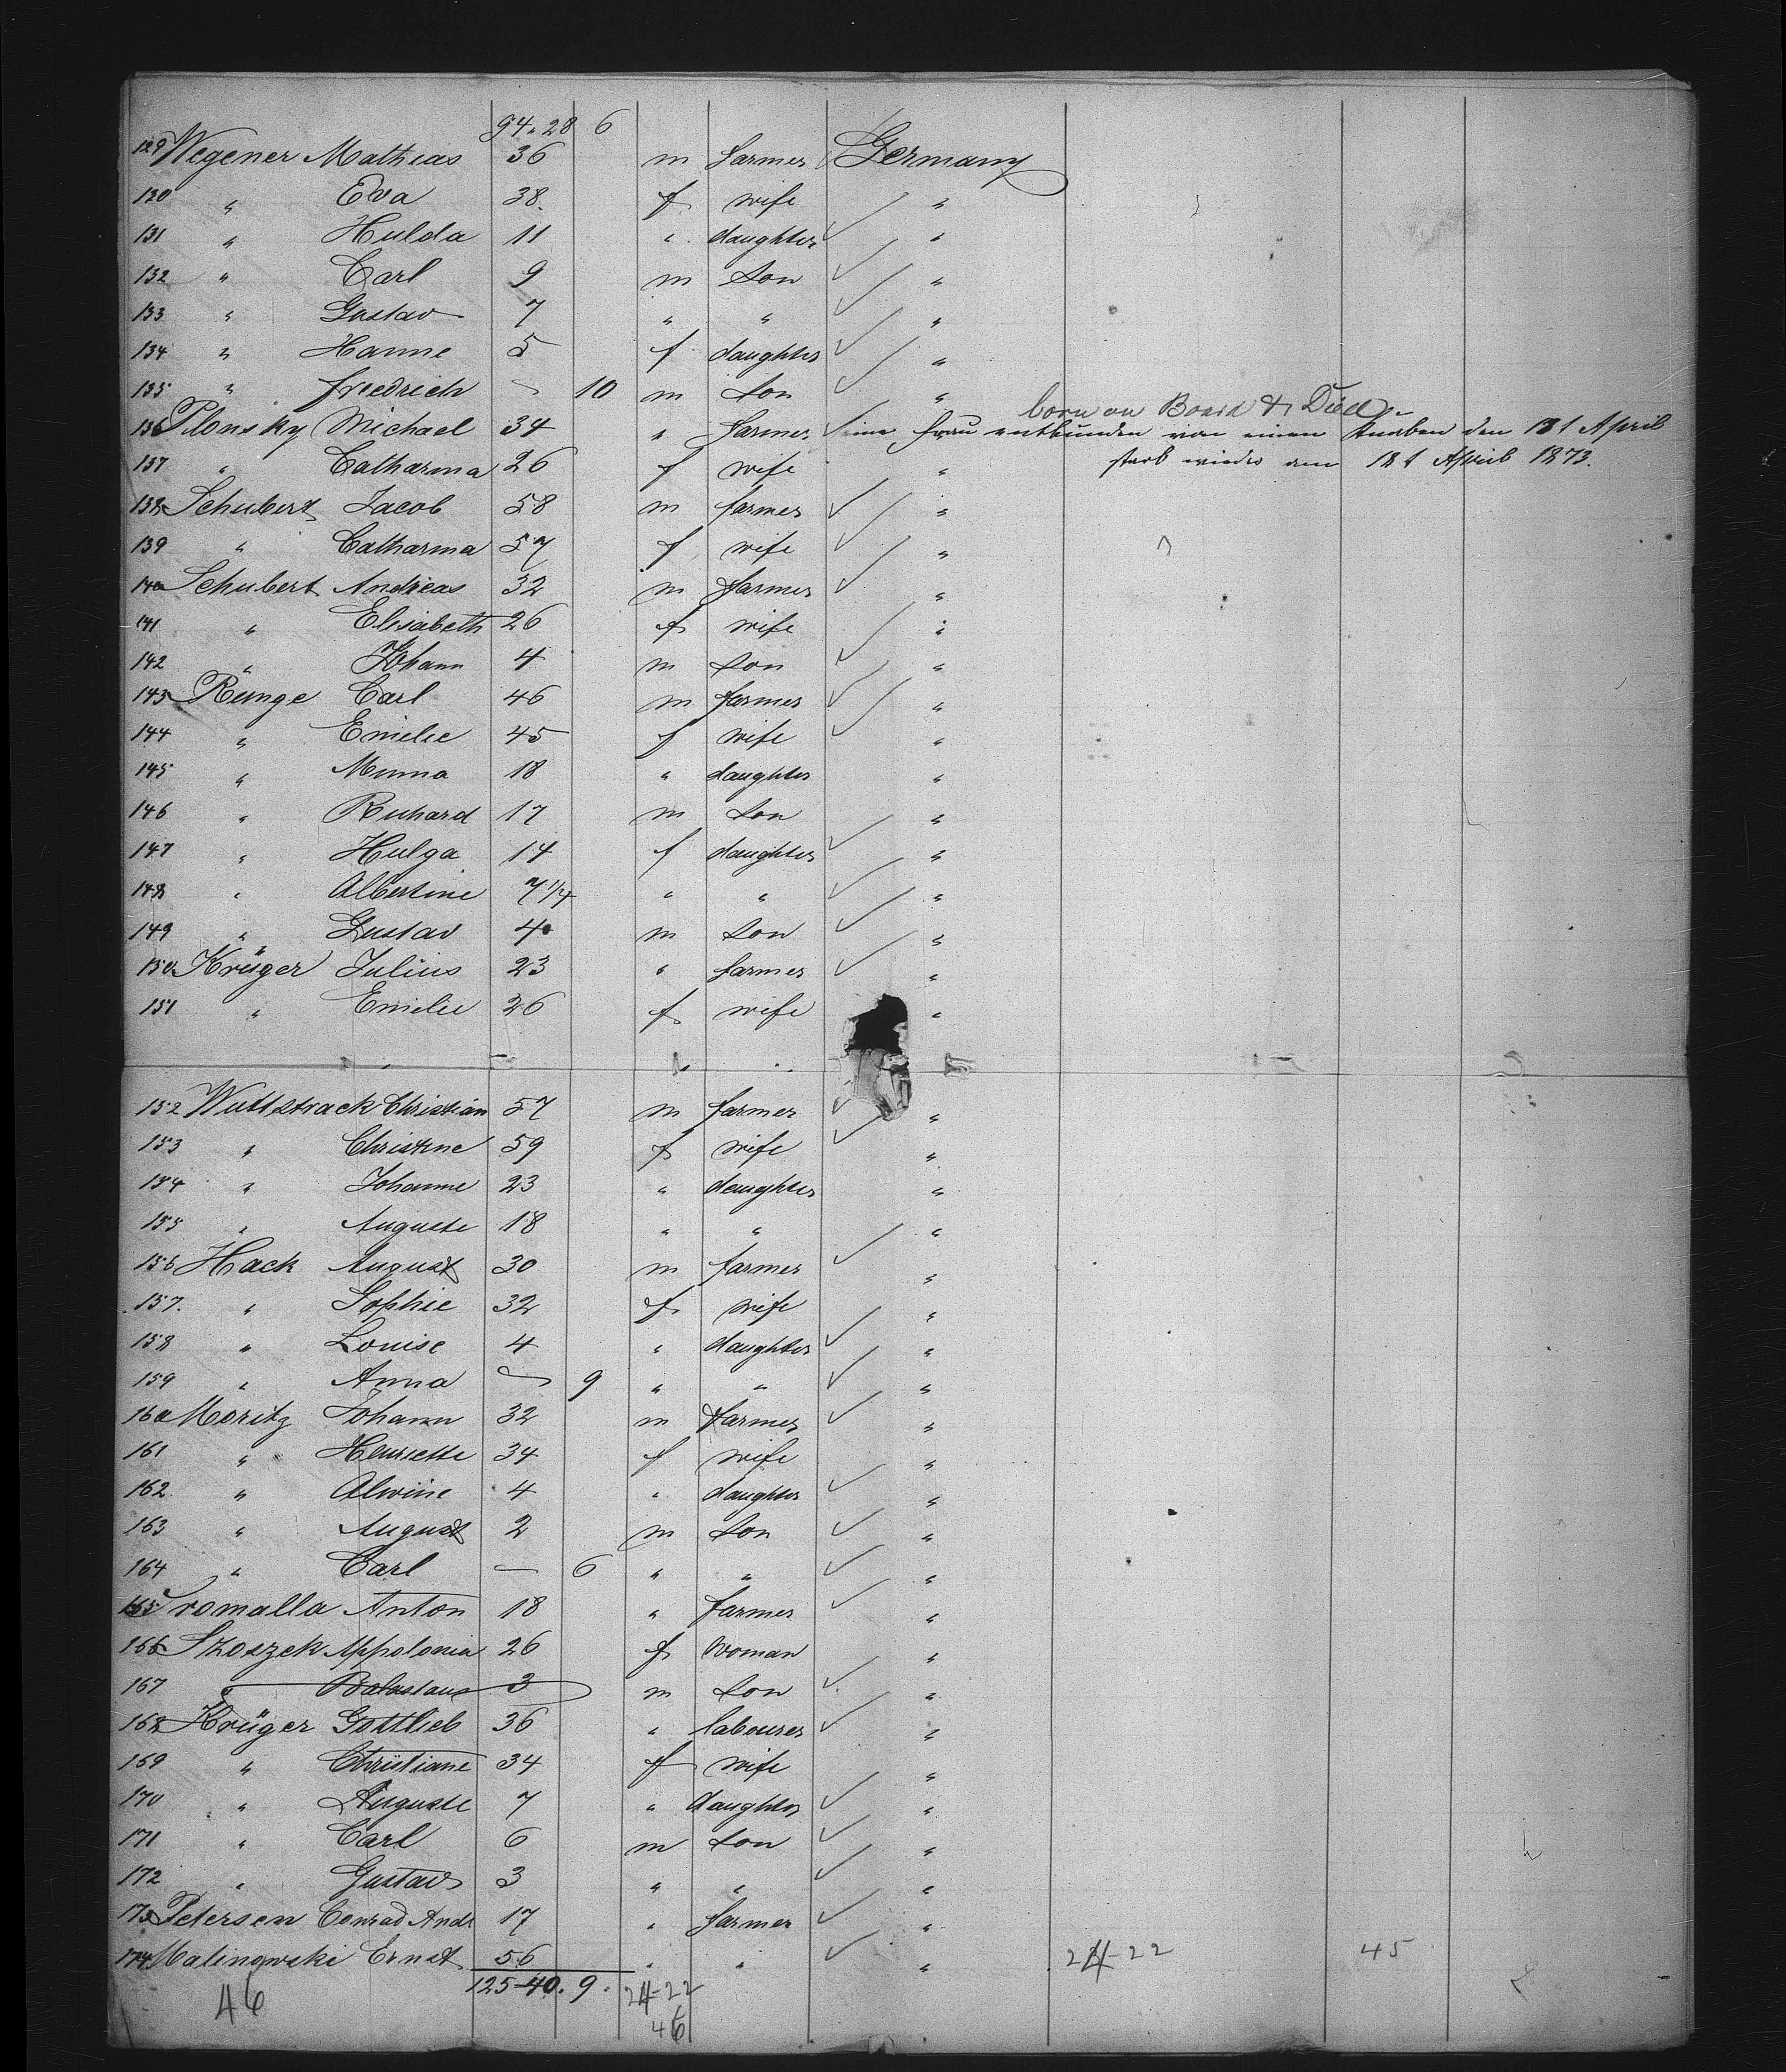 94 . 28 6
129 Wegener Mathias 36 m farmer Germany
130 " Eva 38. f wife "
131 " Hulda 11 " daughter "
132 " Carl 9 m son "
133 " Gustav 7 " " "
134 " Hanne 5 f daughter "
135 " Friedrich - 10 m son "
born on Board & Died
136 Plonsky Michael 34 " farmer seine frau entbunden von einen Knaben den 18t April
137 " Catharina 26 f wife " starb wieder am 18t April 1873.
138 Schubert Jacob 58 m farmer "
139 " Catharina 57 f wife "
140 Schubert Andreas 32 m farmer "
141 " Elisabeth 26 f wife "
142 " Johann 4 m son "
143 Runge Carl 46 m farmer "
144 " Emilie 45 f wife "
145 " Minna 18 " daughter "
146 " Richard 17 m son "
147 " Hulga 14 f daughter "
148 " Albertine 7 1/4 " " "
149 " Gustav 4 m son "
150 Krüger Julius 23 " farmer "
151 " Emilie 26 f wife "
152 Wuttstrack Christian 57 m farmer "
153 " Christine 59 f wife "
154 " Johanne 23 " daughter "
155 " Auguste 18 " " "
156 Hack August 30 m farmer "
157. " Sophie 32 f wife "
158 " Louise 4 " daughter "
159 " Anna - 9 " " "
160 Moritz Johann 32 m farmer "
161 " Henriette 34 f wife "
162 " Alwine 4 " daughter "
163 " August 2 m son "
164 " Carl - 6 " " "
165 Tromalla Anton 18 " farmer "
166 Skoszek Appolonia 26 f woman "
167 " 3 m son "
168 Krüger Gottlieb 36 " labourer "
169 " Christiane 34 f wife "
170 " Auguste 7 " daughter "
171 " Carl 6 m son "
172 " Gustav 3 " " "
173 Petersen Conrad Andr 17 " farmer "
174 Malinowski Ernst 56 " " " 24-22 45
125-40. 9. 24-22
46 46